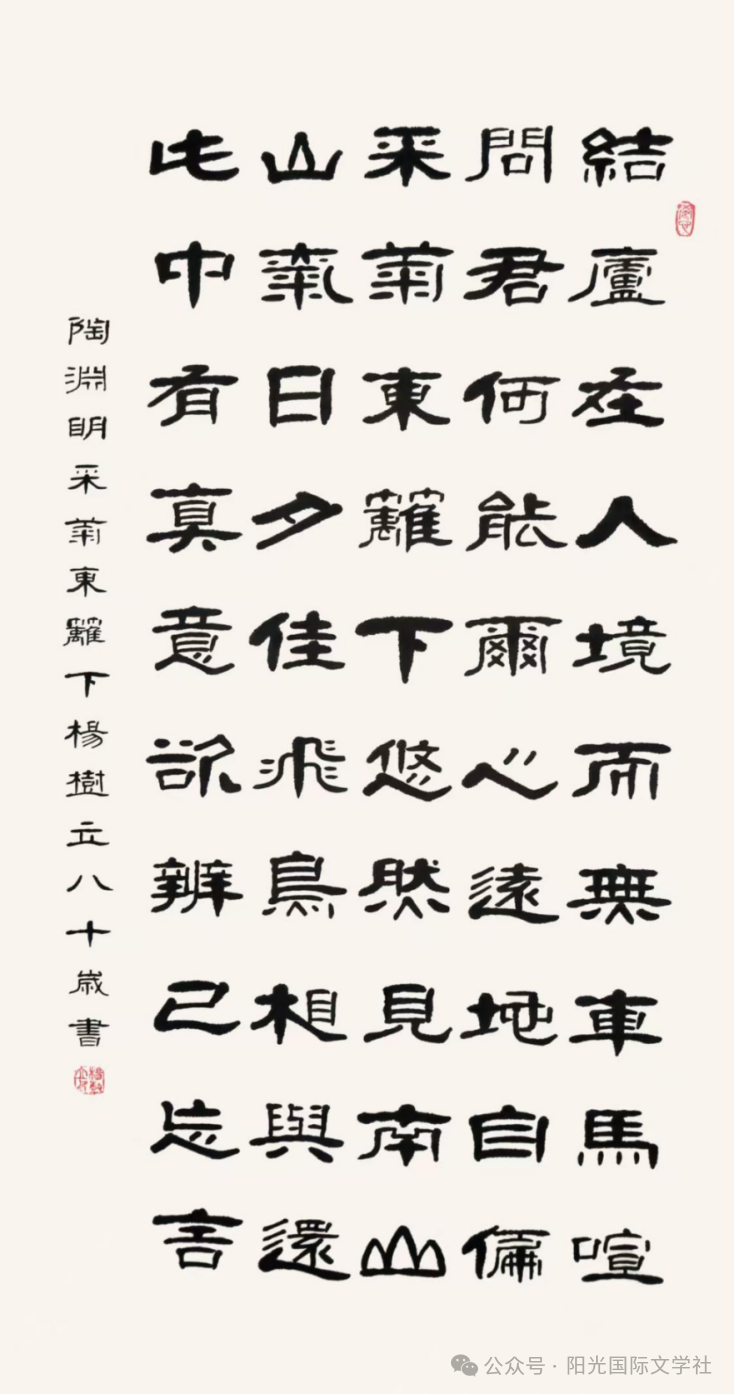 結廬在人境而無車馬喧
問君何能爾心遠地自偏
采菊東籬下悠然見南山
山氣日夕佳飛鳥相與還
此中有真意欲辨已忘言
陶淵明采菊東籬下楊樹立八十歲書
公众号·阳光国际文学社